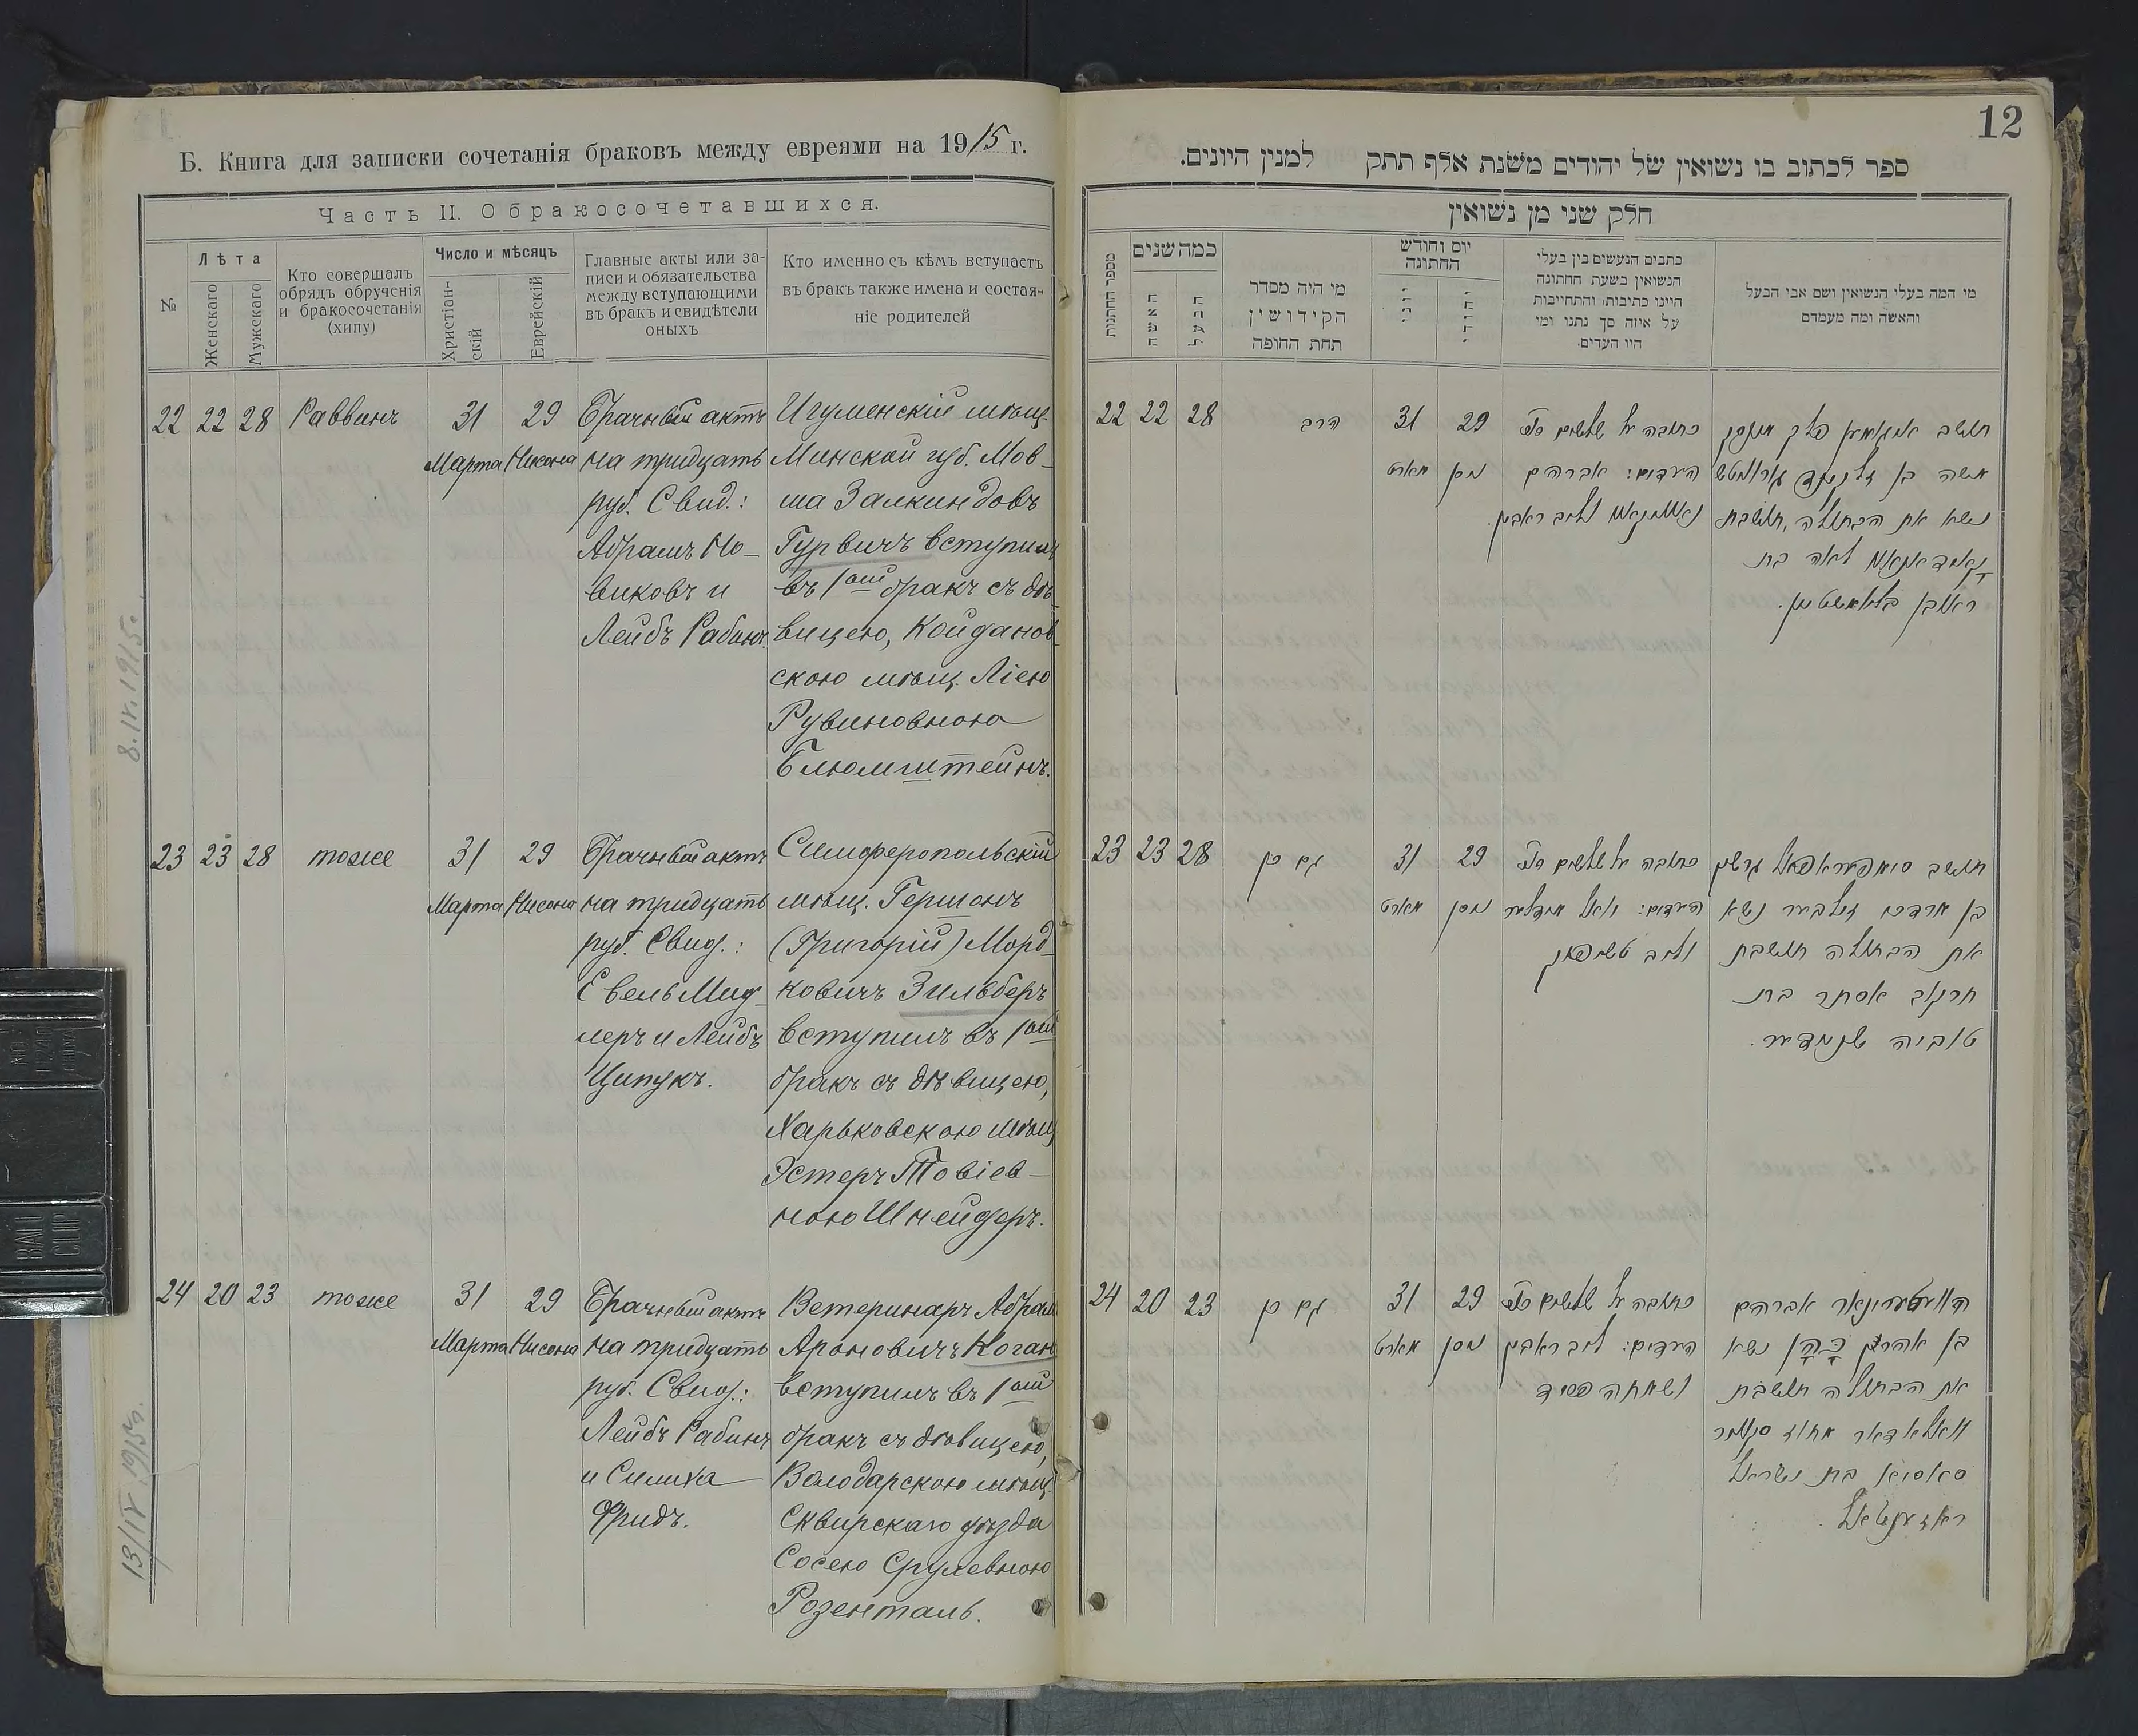 Б. Книга для записки сочетанія браковъ между евреями на 1915 г.
Часть II. О бракосочетавшихся.
№
Лѣта
Женскаго
Мужскаго
Кто совершалъ
обрядъ обрученія
и бракосочетанія
(хипу)
Число и мѣсяцъ
Христіан-
скій
Еврейскій
Главные акты или за-
писи и обязательства
между вступающими
въ бракъ и свидѣтели
оныхъ
Кто именно съ кѣмъ вступаетъ
въ бракъ также имена и состоя-
ніе родителей
22 22 28 Раввинъ 31 29 Брачный актъ Игуменскій мѣщ.
Марта Нисона на тридцать Минской губ. Мов-
руб. Свид.: ша Залкиндовъ
Абрамъ Но- Гурвичъ вступилъ
виковъ и въ 1ый бракъ съ дѣ-
Лейбъ Рабинъ. вицею, Койданов-
скою мѣщ.Ліею
Рувиновною
Блюмштейнъ.
23 23 28 тоже 31 29 Брачный актъ Симферопольскій
Марта Нисона на тридцать мѣщ. Гершонъ
руб. Свид.: (Григорій) Морд-
Евель Мид- ковичъ Зильберъ
леръ и Лейбъ вступилъ въ 1ый
Ципукъ. бракъ съ дѣвицею,
Харьковскою мѣщ
Эстеръ Товіев-
ною Шнейдеръ.
24 20 23 тоже 31 29 Брачный актъ Ветеринаръ Абрам
Марта Нисона на тридцать Ароновичъ Коган
руб. Свид.: вступилъ въ 1ый
Лейбъ Рабинъ бракъ съ дѣвицею,
и Симха Володарскою мѣщ.
Фридъ. Сквирскаго уѣзда
Сосею Срулевною
Розенталь.
8.IV.1915.
13/IV 1915г.
12
ספר לכתוב בו נשואין של יהודים משנת אלף תתק למנין היונים.
חלק שני מן נשואין
כמה שנים
האשה
הבעל
מי היה מסדר
הקידושין
תחת החופה
יום וחודש
החתונה
כתבים הנעשים בין בעלי
הנשואין בשעת החתונה
היינו כתיבות והתחייבות
על איזה סך נתנו ומי
היו העדים
מי המה בעלי הנשואין ושם אבי הבעל
והאשה ומה מעמדם
22 22 28 הרב 31 29 כתובה על שלשים
מארט ניסן העדים: אברהם
משה בן
נשא את הבתולה, תושבת
לאה בת
ראובן בלומשטיין.
23 23 28 גם כן 31 29 כתובה על שלשים
מארט ניסן העדים:
בן מרדכי זילבער נשא
את הבתולה תושבת
חרקוב אסתר בת
טוביה שניידער.
24 20 23 גם כן 31 29 כתובה על שלשים
הוועטערינאר אברהם
מארט ניסן העדים: לייב ראבין
בן אהרן כהן נשא
ושמחה פריד
את הבתולה תושבת
סאסיא בת ישראל
ראזענטאל.